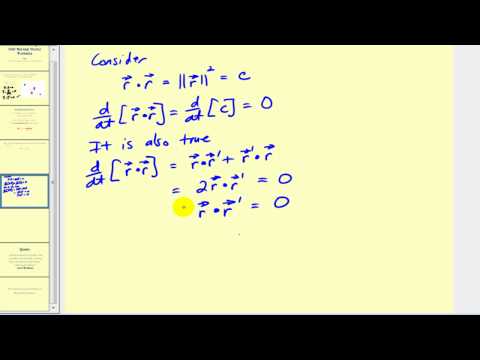 Consider
r⃗ • r⃗ = ||r⃗||² = c
d/dt [r⃗ • r⃗] = d/dt [c] = 0
It is also true
d/dt [r⃗ • r⃗] = r⃗ • r⃗' + r⃗' • r⃗
= 2r⃗ • r⃗' = 0
r⃗ • r⃗' = 0